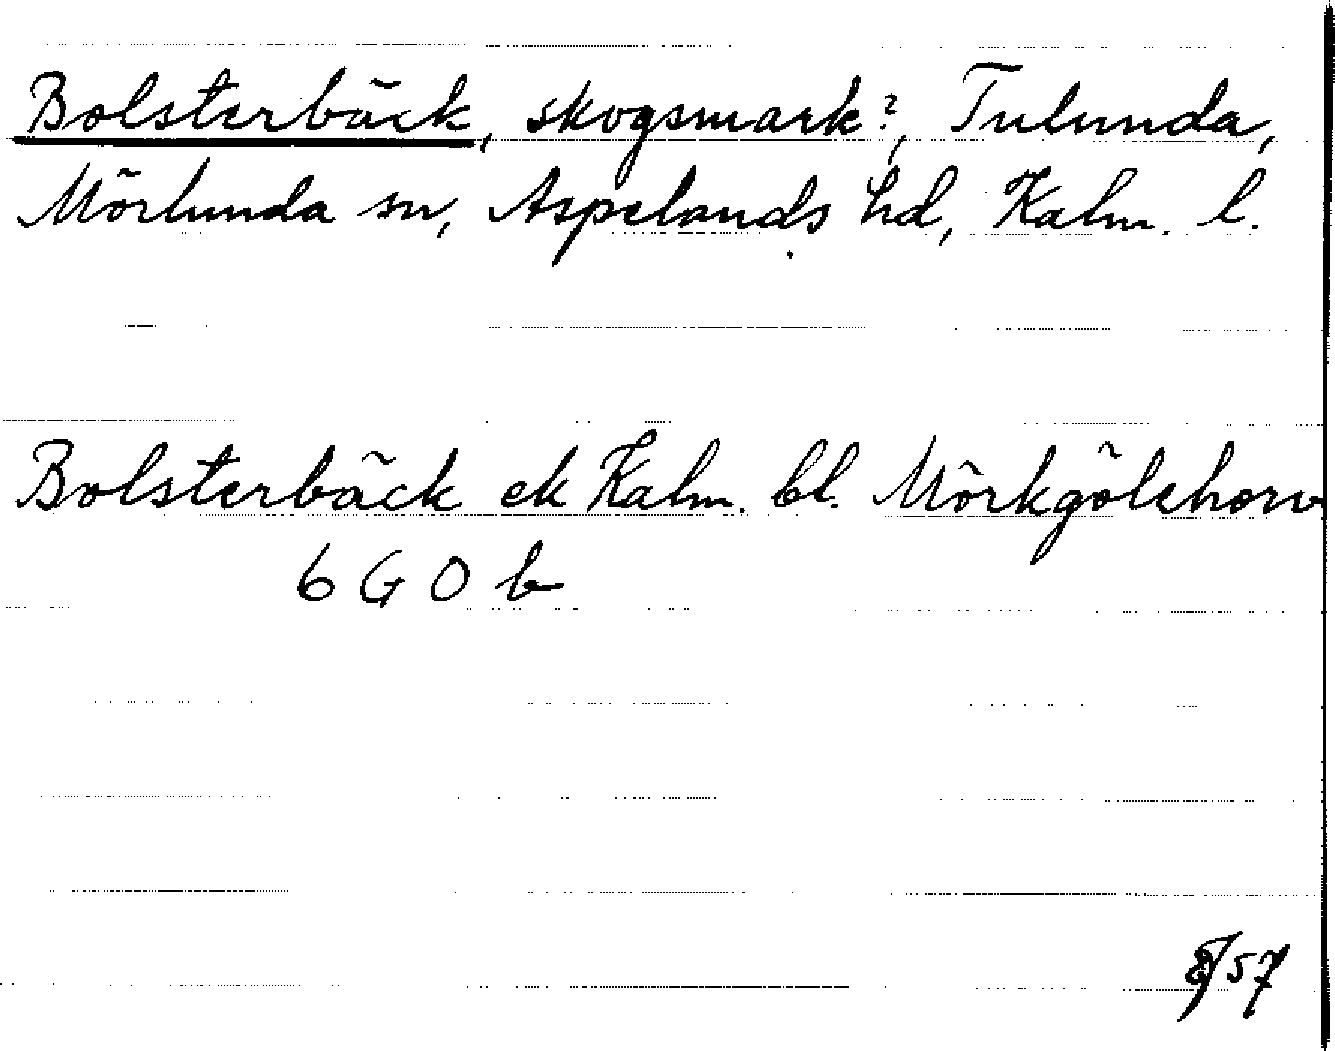 Bolsterbäck, skogsmark?, Tulunda,
Mörlunda sn, Aspelands hd, Kalm. l.
Bolsterbäck ek Kalm. bl. Mörkgölehorv
6 G O b
57